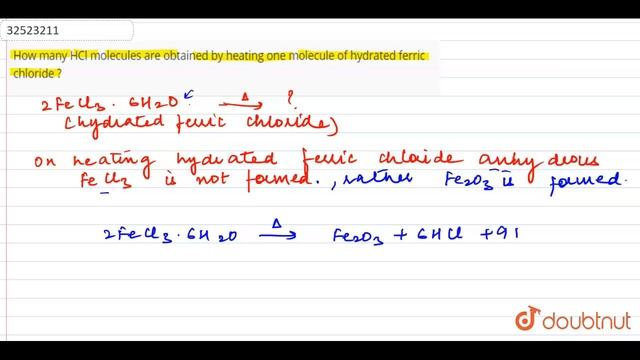 32523211
How many HCl molecules are obtained by heating one molecule of hydrated ferric
chloride ?
2FeCl3 · 6H2O Δ→ ?
(hydrated ferric chloride)
on heating hydrated ferric chloride anhydrous
FeCl3 is not formed., rather Fe2O3 is formed.
2FeCl3·6H2O Δ→ Fe2O3 + 6HCl + 9
doubtnut